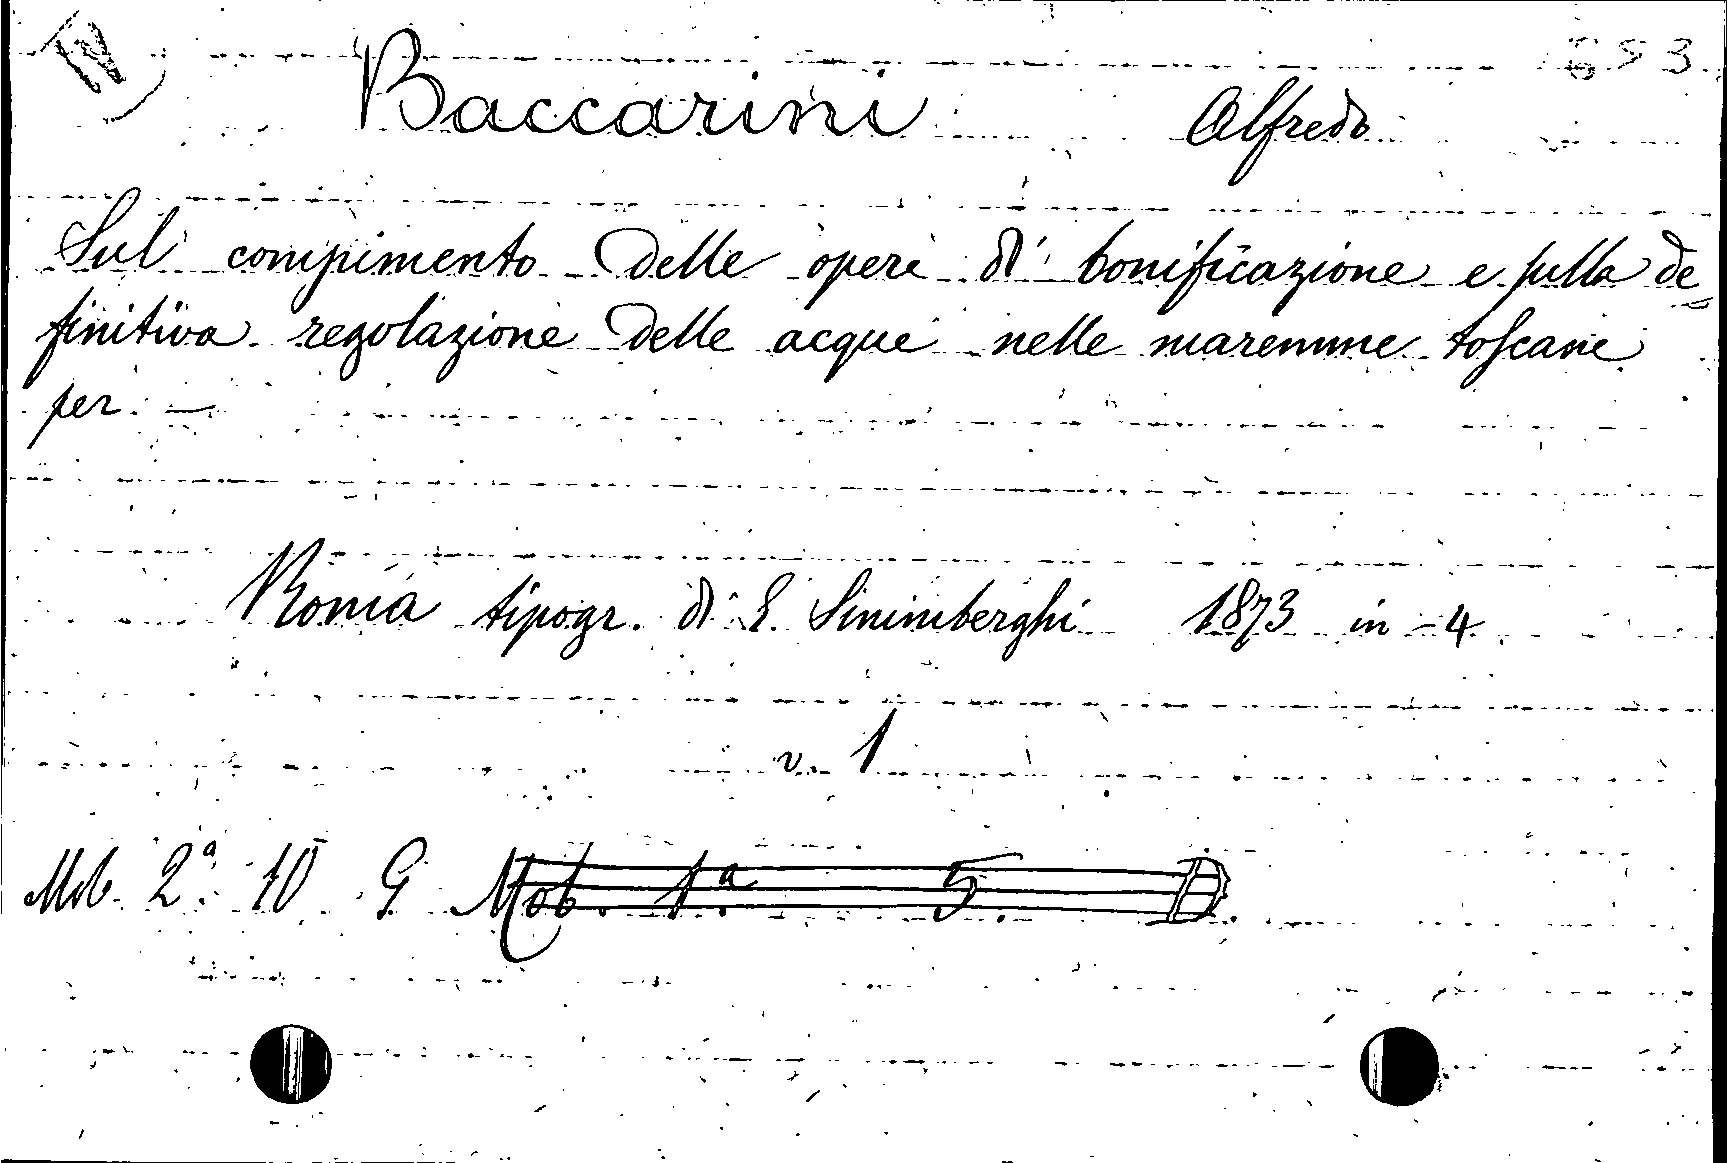 IV) 653
Baccarini Alfredo
Sul compimento delle opere di bonificazione e sulla de
finitiva regolazione delle acque nelle maremme toscane
per —
Roma tipogr. di E. Sinimberghi 1873 in-4
v. 1
Mob. 2ª. 10 G Mob. 1ª. 5. D.